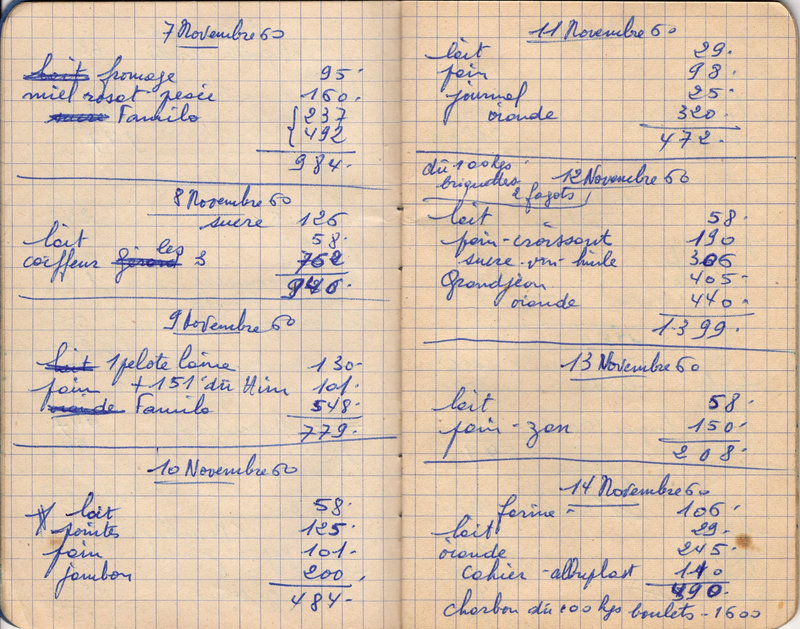 7 Novembre 60
lait fromage 95.
miel rosat pesée 160.
sucre Familo { 237
{ 492
984.
8 Novembre 60
sucre 126
lait 58.
coiffeur Gérard les 3 762
946.
9 Novembre 60
lait 1 pelote laine 130.
pain + 151 dû Him 101.
viande Familo 548.
779.
10 Novembre 60
lait 58.
pointes 125.
pain 101.
jambon 200.
484.
11 Novembre 60
lait 29.
pain 98.
journal 25.
viande 320.
472.
dû 100 kgs
briquettes
2 fagots
12 Novembre 60
lait 58.
pain-croissant 190
sucre-vin-huile 306
Grandjean 405.
viande 440.
1399.
13 Novembre 60
lait 58.
pain-zan 150.
208.
14 Novembre 60
farine - 106.
lait 29.
viande 245.
cahier - albuplast 110
490.
charbon dû 100 kgs boulets - 1600